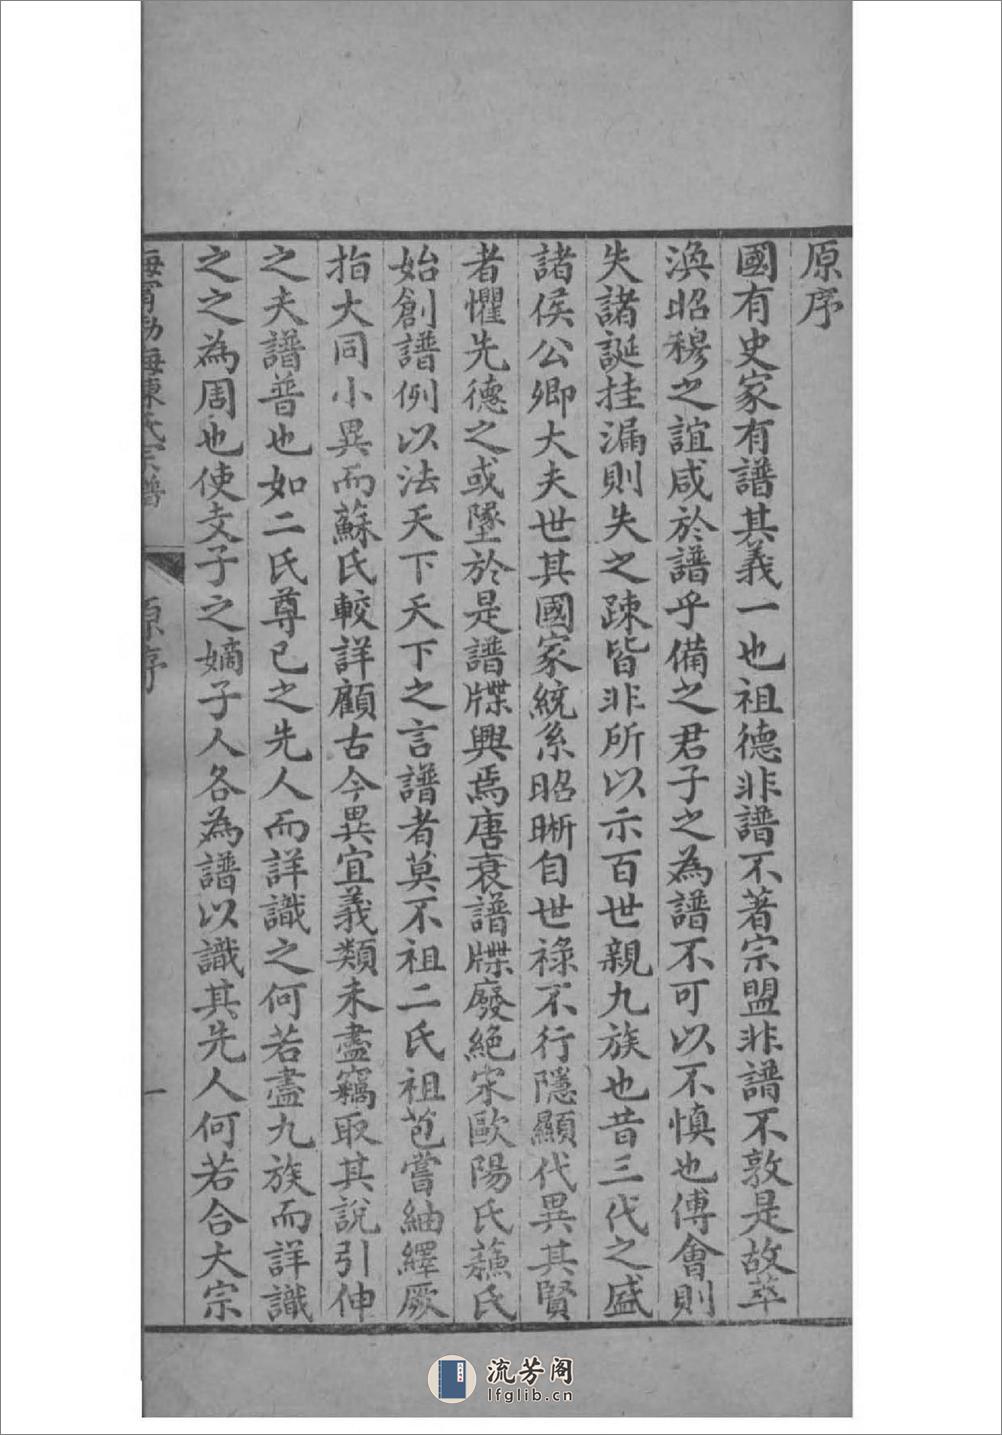 原序
國有史家有譜其義一也祖德非譜不著宗盟非譜不敦是故萃
渙昭穆之誼咸於譜乎備之君子之為譜不可以不慎也傅會則
失諸誕挂漏則失之疎皆非所以示百世親九族也昔三代之盛
諸侯公卿大夫世其國家統系昭晣自世祿不行隱顯代異其賢
者懼先德之或墜於是譜牒興焉唐衰譜牒廢絕宋歐陽氏蘓氏
始創譜例以法天下天下之言譜者莫不祖二氏祖苞嘗紬繹厥
指大同小異而蘇氏較詳顧古今異宜義類未盡竊取其說引伸
之夫譜普也如二氏尊已之先人而詳識之何若盡九族而詳識
之之為周也使支子之嫡子人各為譜以識其先人何若合大宗
海寧渤海陳氏宗譜
原序
一
流芳阁
lfglib.cn